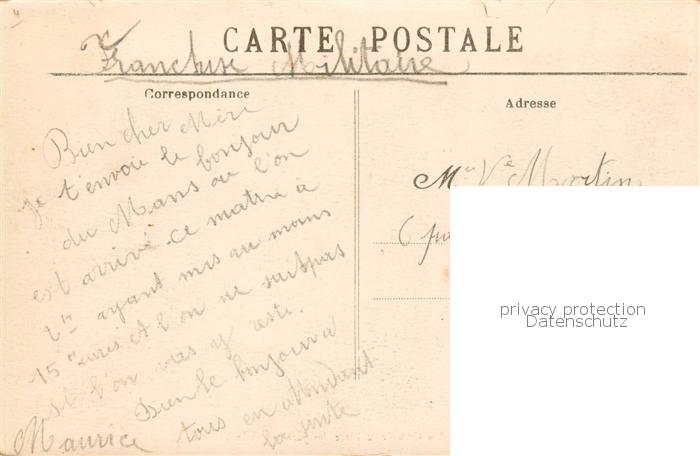 CARTE POSTALE
Franchise Militaire
Correspondance
Adresse
Bien cher Mère
je t'envoie le bonjour
du Mans ou l'on
est arrivé ce matin à
2 h ayant mis au moins
15 heures et l'on ne sait pas
si l'on vas y reste.
Bien le bonjour a
tous en attendant
la suite
Maurice
Mme Ve Martin
6
privacy protection
Datenschutz